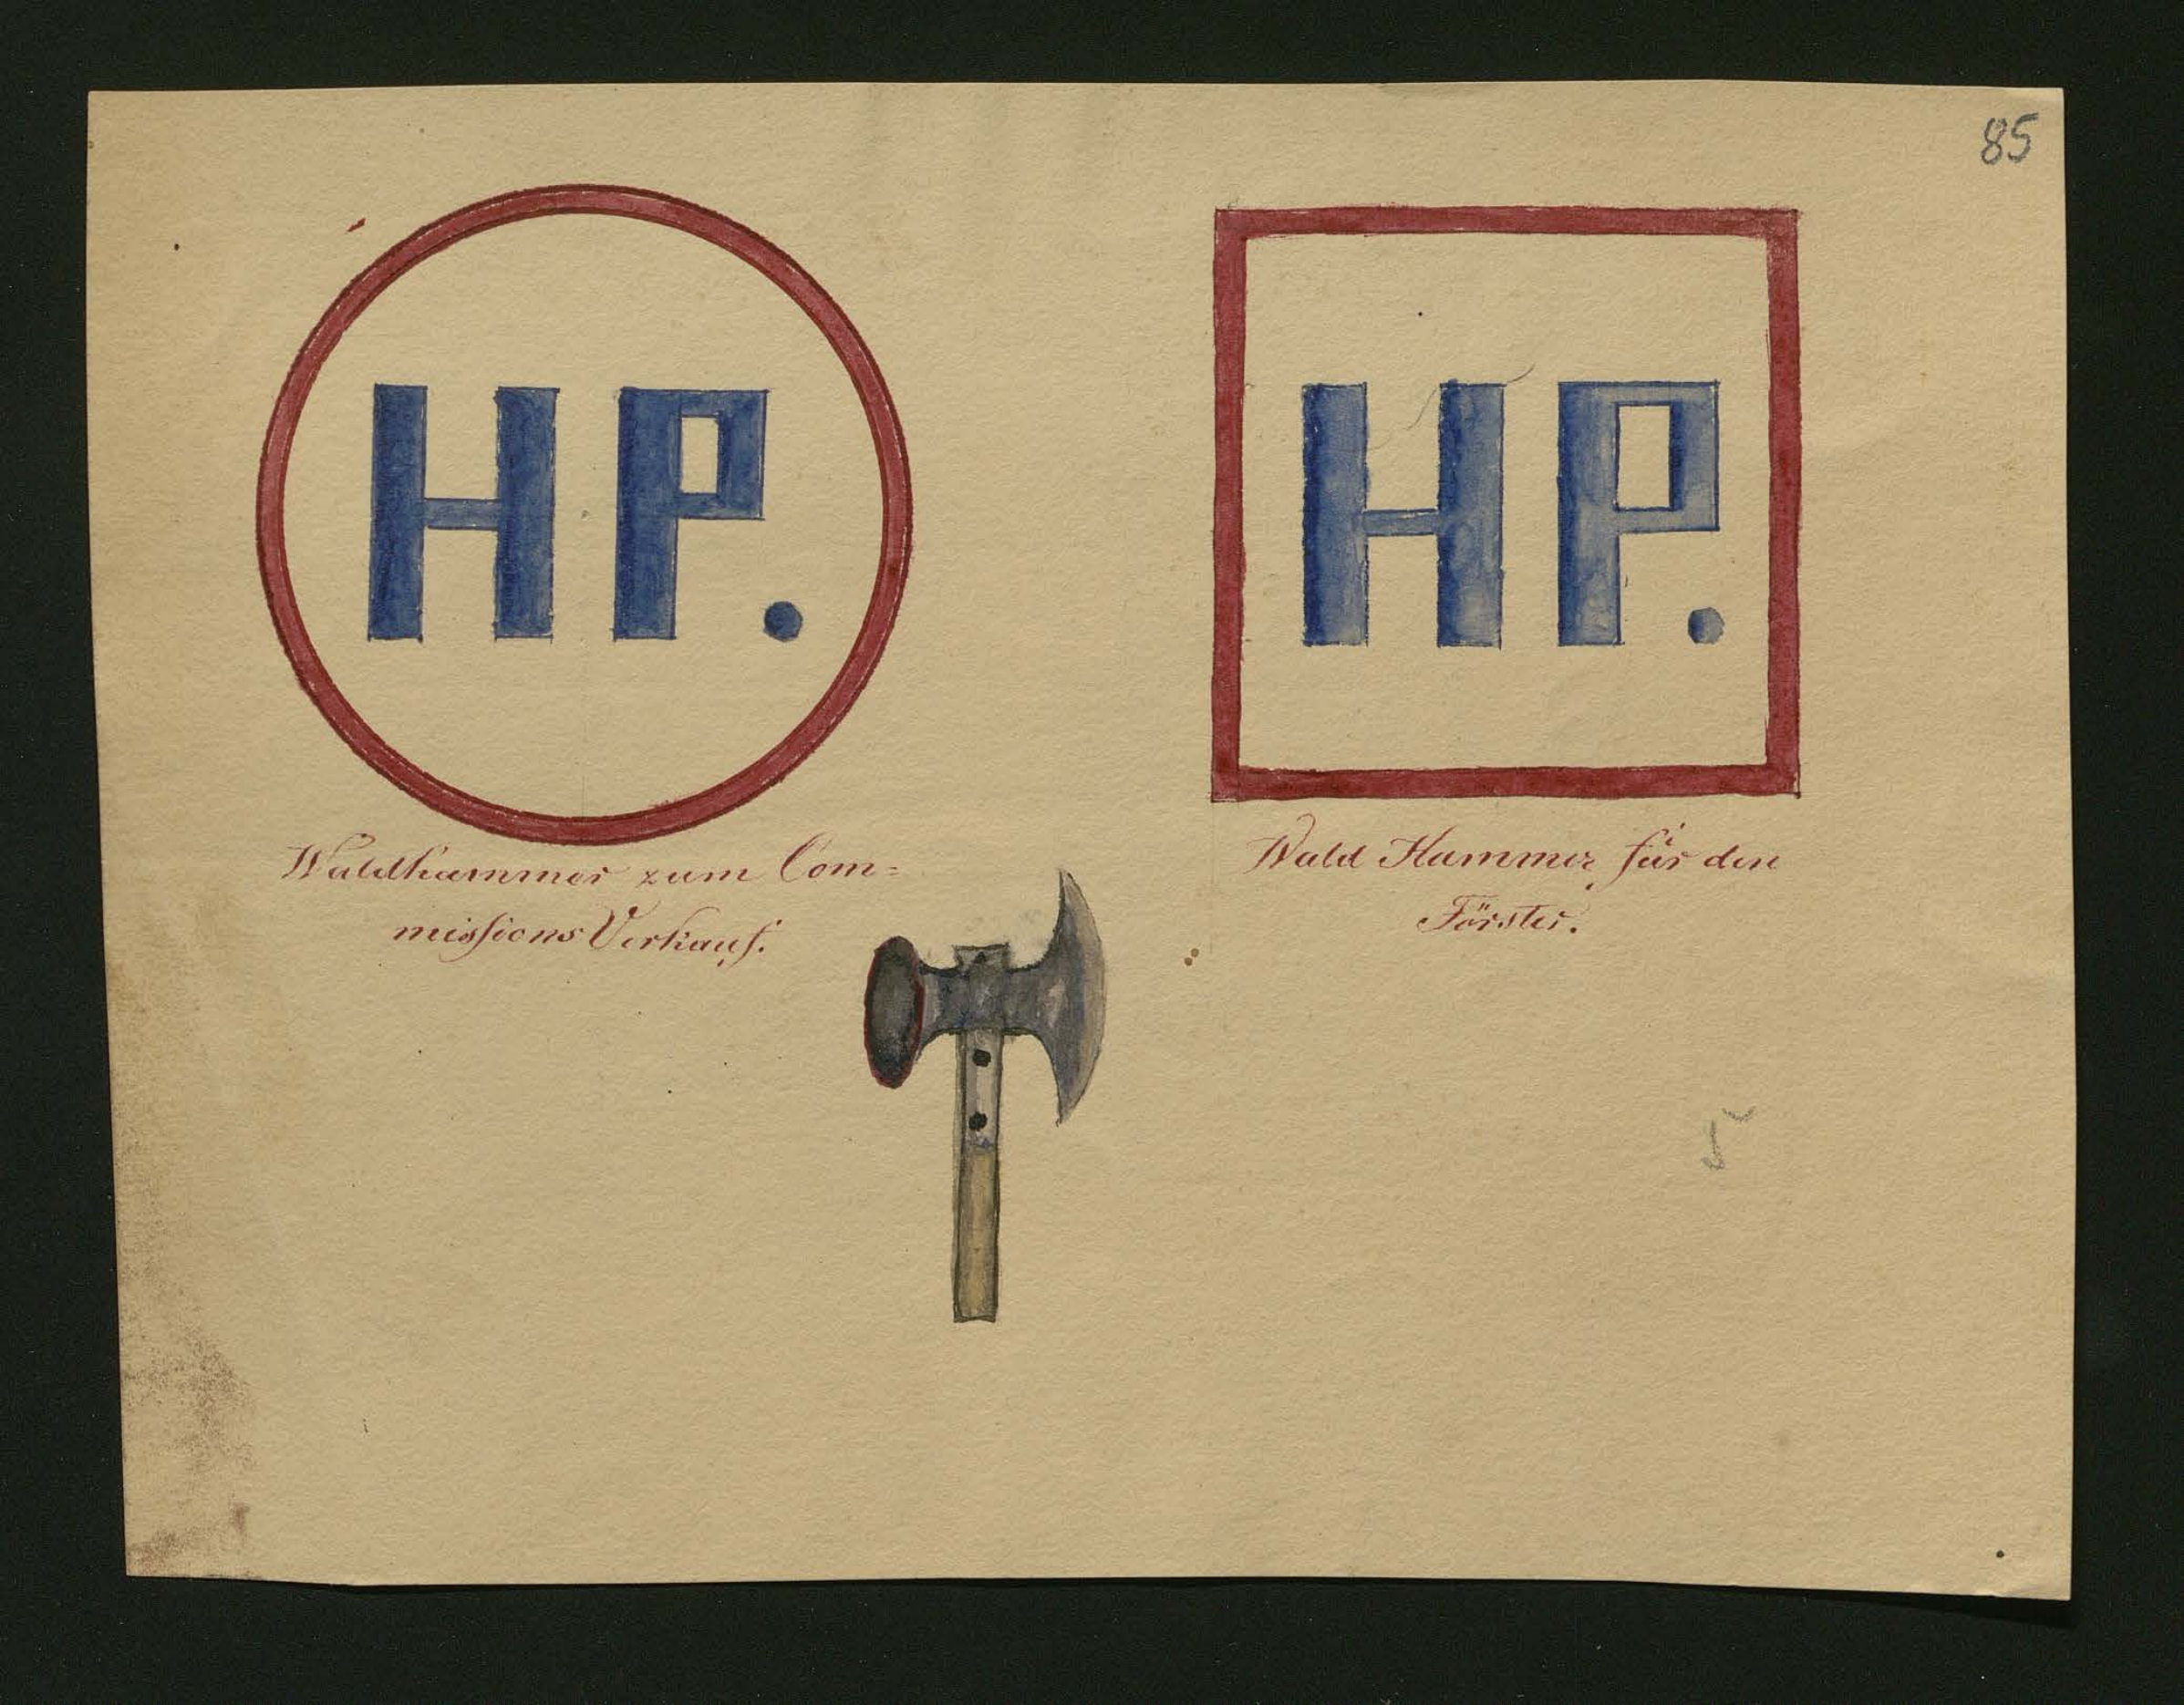 85
HP.
HP.
Waldhammer zum Com=
missions Verkauf.
Wald Hammer für den
Förster.
5